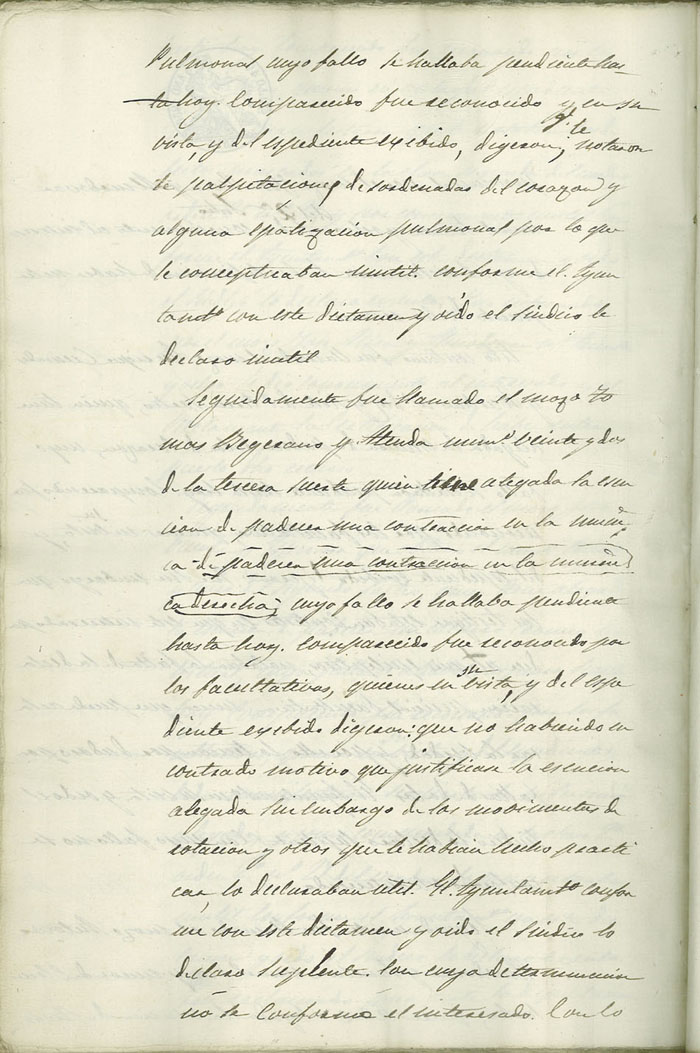 Pulmonal cuyo fallo se hallaba pendiente has-
ta hoy. Comparecido fue reconocido y en su
vista, y del espediente exibido, digeron; q.e le notaron
te palpitaciones desordenadas del corazon y
alguna epatizacion pulmonal por lo que
le conceptuaban inutil. conforme el Ayun
tamto con este dictamen y oido el Sindico le
declaro inutil
Seguidamente fue llamado el mozo To
mas Begerano y numo veinte y dos
de la tercera suerte quien tiene alegada la esen
cion de padecer una contraccion en la muñe
ca de padecer una contraccion en la muñe
ca derecha; cuyo fallo se hallaba pendiente
hasta hoy. comparecido fue reconocido por
los facultativos, quienes en su vista, y del espe
diente exibido digeron: que no habiendo en
contrado motivo que justificase la esencion
alegada sin embargo de los movimientos de
rotacion y otros que le habian hecho practi
car, lo declaraban util. El Ayuntamto confor
me con este dictamen y oido el Sindico lo
declaro Suplente. Con cuya determinacion
no se conformó el interesado. Con lo